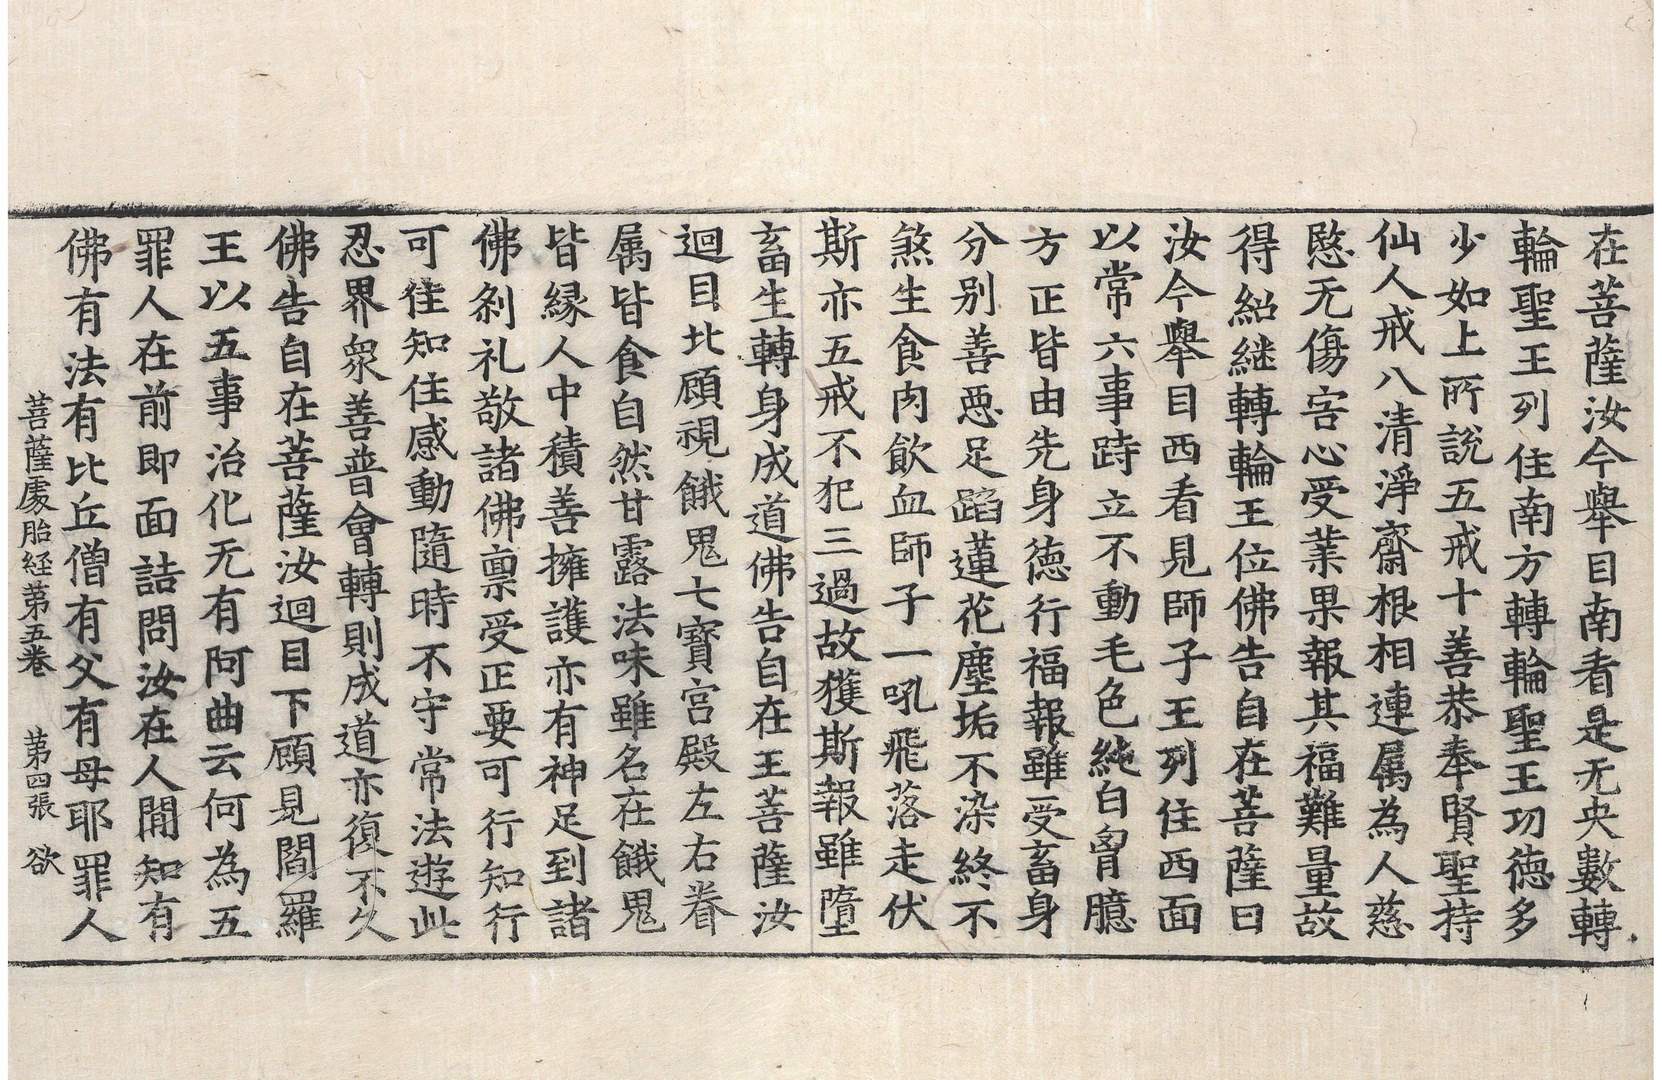 在菩薩汝今舉目南看是无央數轉
輪聖王列住南方轉輪聖王功德多
少如上所說五戒十善恭奉賢聖持
仙人戒八清淨齋根相連属為人慈
愍无傷害心受業果報其福難量故
得紹継轉輪王位佛告自在菩薩曰
汝今舉目西看見師子王列住西面
以常六事跱立不動毛色純白胷臆
方正皆由先身德行福報雖受畜身
分別善惡足蹈蓮花塵垢不染終不
煞生食肉飲血師子一吼飛落走伏
斯亦五戒不犯三過故獲斯報雖墮
畜生轉身成道佛告自在王菩薩汝
迴目北顧視餓鬼七寶宮殿左右眷
属皆食自然甘露法味雖名在餓鬼
皆緣人中積善擁護亦有神足到諸
佛剎礼敬諸佛禀受正要可行知行
可往知住感動隨時不守常法遊此
忍界衆善普會轉則成道亦復不久
佛告自在菩薩汝迴目下顧見閻羅
王以五事治化无有阿曲云何為五
罪人在前即面詰問汝在人間知有
佛有法有比丘僧有父有母耶罪人
菩薩處胎経苐五卷 苐四張 欲